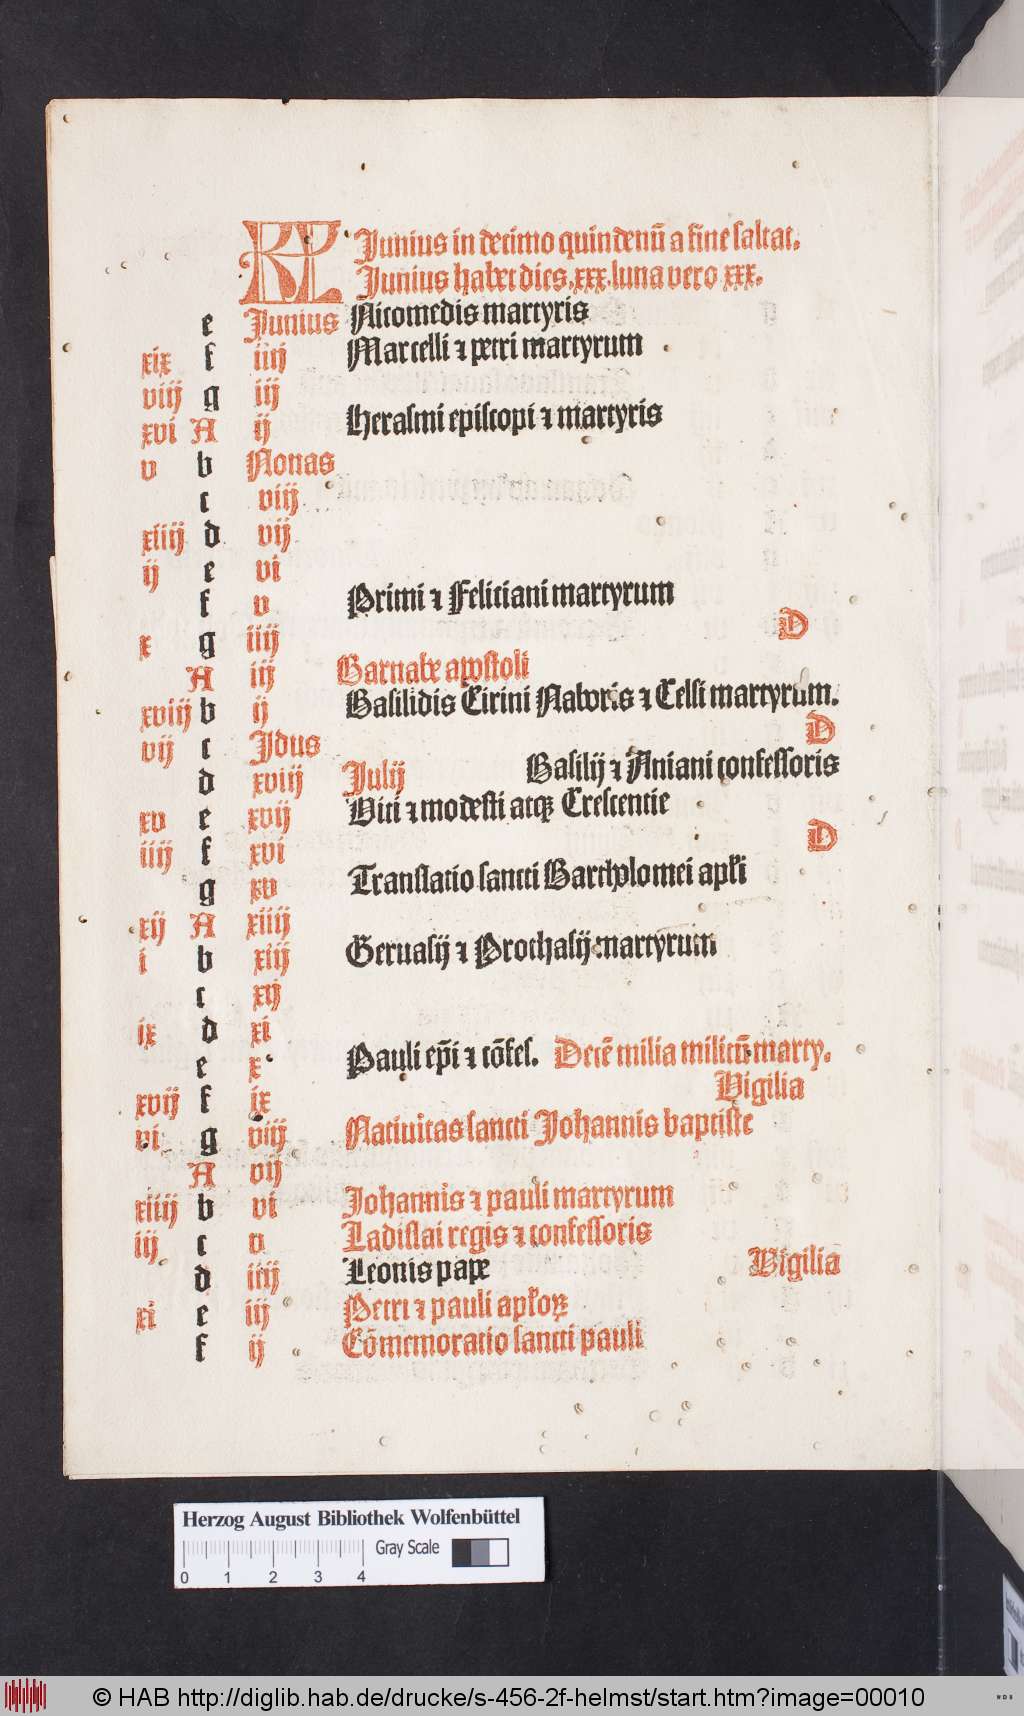 KL Junius in decimo quindenū a fine saltat.
Junius habet dies .xxx. luna vero xxx.
e Junius Nicomedis martyris
xix f iiij Marcelli ⁊ petri martyrum
viij g iij
xvi A ij Herasmi episcopi ⁊ martyris
v b Nonas
c viij
xiiij d vij
ij e vi
f v Primi ⁊ Feliciani martyrum
x g iiij D
A iij Barnabe apostoli
xviij b ij Basilidis Cirini Naboris ⁊ Celsi martyrum.
vij c Jdus D
d xviij Julij Basilij ⁊ Aniani confessoris
xv e xvij Viti ⁊ modesti atqꝫ Crescentie
iiij f xvi D
g xv Translatio sancti Bartholomei apƚi
xij A xiiij
i b xiij Geruasij ⁊ Prothasij martyrum
c xij
ix d xi
e x Pauli ep̄i ⁊ cōfes. Decē milia militū marty.
xvij f ix Vigilia
vi g viij Natiuitas sancti Johannis baptiste
A vij
xiiij b vi Johannis ⁊ pauli martyrum
iij c v Ladislai regis ⁊ confessoris
d iiij Leonis pape Vigilia
xi e iij Petri ⁊ pauli apƚoꝝ
f ij Cōmemoratio sancti pauli
Herzog August Bibliothek Wolfenbüttel
Gray Scale
0 1 2 3 4
© HAB http://diglib.hab.de/drucke/s-456-2f-helmst/start.htm?image=00010